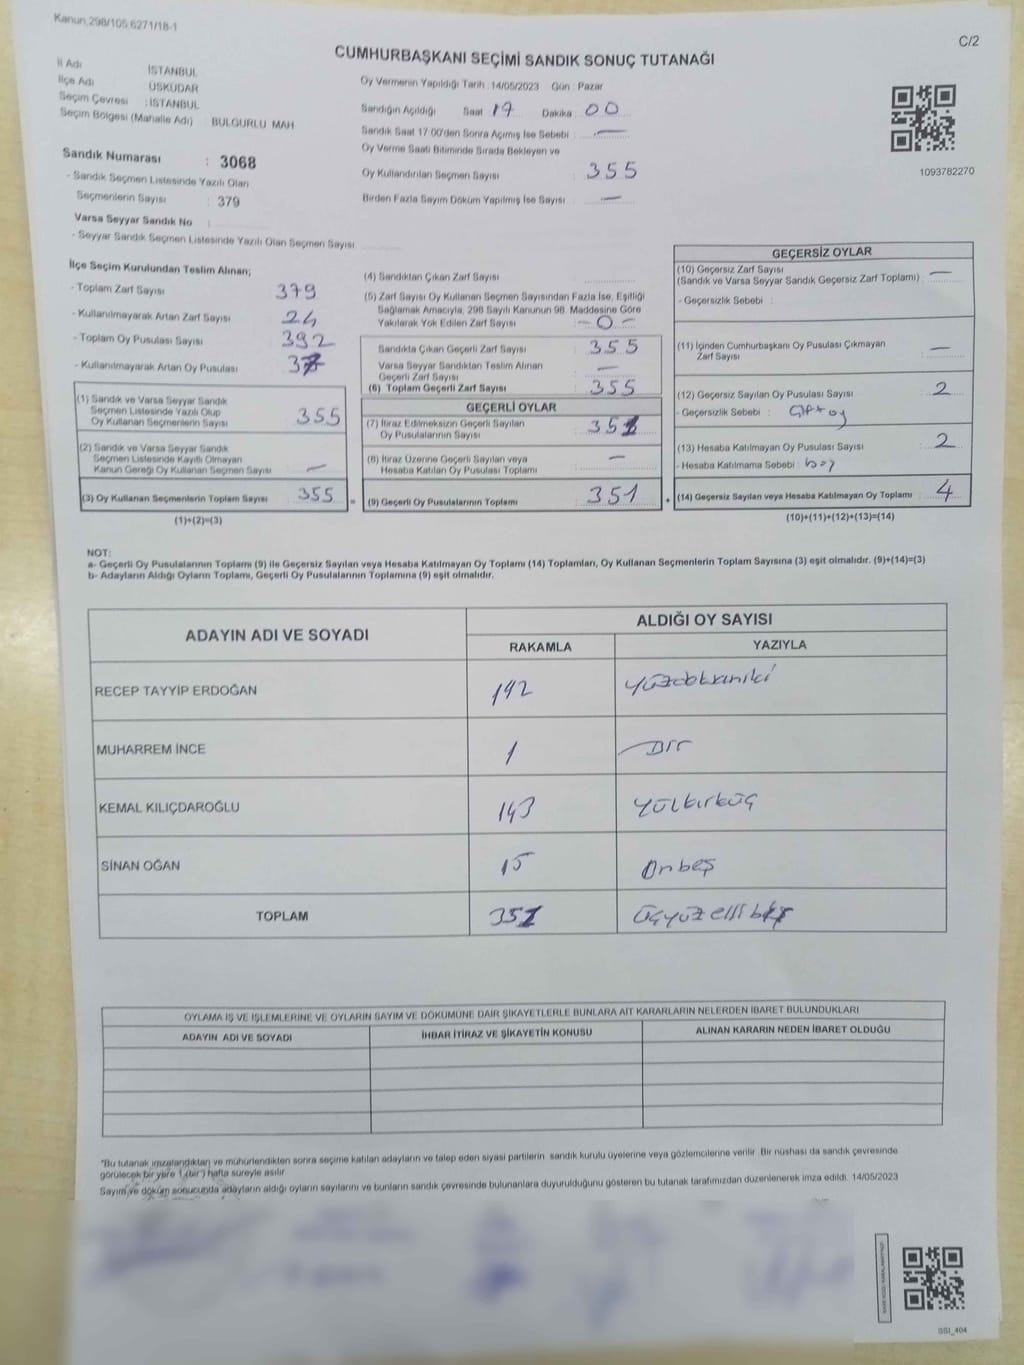 Kanun.298/105,6271/18-1
C/2
CUMHURBAŞKANI SEÇİMİ SANDIK SONUÇ TUTANAĞI
İl Adı İSTANBUL
İlçe Adı ÜSKÜDAR
Seçim Çevresi : İSTANBUL
Seçim Bölgesi (Mahalle Adı) : BULGURLU MAH
Sandık Numarası : 3068
- Sandık Seçmen Listesinde Yazılı Olan
Seçmenlerin Sayısı : 379
Varsa Seyyar Sandık No :
- Seyyar Sandık Seçmen Listesinde Yazılı Olan Seçmen Sayısı
Oy Vermenin Yapıldığı Tarih : 14/05/2023 Gün : Pazar
Sandığın Açıldığı Saat : 17 Dakika : 00
Sandık Saat 17:00'den Sonra Açımış İse Sebebi : —
Oy Verme Saati Bitiminde Sırada Bekleyen ve
Oy Kullandırılan Seçmen Sayısı : 355
Birden Fazla Sayım Döküm Yapılmış İse Sayısı : —
1093782270
İlçe Seçim Kurulundan Teslim Alınan;
- Toplam Zarf Sayısı 379
- Kullanılmayarak Artan Zarf Sayısı 24
- Toplam Oy Pusulası Sayısı 392
- Kullanılmayarak Artan Oy Pusulası
(1) Sandık ve Varsa Seyyar Sandık
Seçmen Listesinde Yazılı Olup
Oy Kullanan Seçmenlerin Sayısı 355
(2) Sandık ve Varsa Seyyar Sandık
Seçmen Listesinde Kayıtlı Olmayan
Kanun Gereği Oy Kullanan Seçmen Sayısı —
(3) Oy Kullanan Seçmenlerin Toplam Sayısı 355 =
(1)+(2)=(3)
(4) Sandıktan Çıkan Zarf Sayısı :
(5) Zarf Sayısı Oy Kullanan Seçmen Sayısından Fazla İse, Eşitliği
Sağlamak Amacıyla, 298 Sayılı Kanunun 98. Maddesine Göre
Yakılarak Yok Edilen Zarf Sayısı : - 0 -
Sandıkta Çıkan Geçerli Zarf Sayısı : 355
Varsa Seyyar Sandıktan Teslim Alınan
Geçerli Zarf Sayısı —
(6) Toplam Geçerli Zarf Sayısı : 355
GEÇERLİ OYLAR
(7) İtiraz Edilmeksizin Geçerli Sayılan
Oy Pusulalarının Sayısı : 351
(8) İtiraz Üzerine Geçerli Sayılan veya
Hesaba Katılan Oy Pusulası Toplamı : —
(9) Geçerli Oy Pusulalarının Toplamı : 351 +
GEÇERSİZ OYLAR
(10) Geçersiz Zarf Sayısı
(Sandık ve Varsa Seyyar Sandık Geçersiz Zarf Toplamı) : —
- Geçersizlik Sebebi :
(11) İçinden Cumhurbaşkanı Oy Pusulası Çıkmayan
Zarf Sayısı : —
(12) Geçersiz Sayılan Oy Pusulası Sayısı : 2
- Geçersizlik Sebebi : Çift oy
(13) Hesaba Katılmayan Oy Pusulası Sayısı : 2
- Hesaba Katılmama Sebebi : boş
(14) Geçersiz Sayılan veya Hesaba Katılmayan Oy Toplamı : 4
(10)+(11)+(12)+(13)=(14)
NOT:
a- Geçerli Oy Pusulalarının Toplamı (9) ile Geçersiz Sayılan veya Hesaba Katılmayan Oy Toplamı (14) Toplamları, Oy Kullanan Seçmenlerin Toplam Sayısına (3) eşit olmalıdır. (9)+(14)=(3)
b- Adayların Aldığı Oyların Toplamı, Geçerli Oy Pusulalarının Toplamına (9) eşit olmalıdır.
ADAYIN ADI VE SOYADI ALDIĞI OY SAYISI
RAKAMLA YAZIYLA
RECEP TAYYİP ERDOĞAN 192 Yüzdoksaniki
MUHARREM İNCE 1 Bir
KEMAL KILIÇDAROĞLU 143 Yüzkırküç
SİNAN OĞAN 15 Onbeş
TOPLAM 351 Üçyüzellibir
OYLAMA İŞ VE İŞLEMLERİNE VE OYLARIN SAYIM VE DÖKÜMÜNE DAİR ŞİKAYETLERLE BUNLARA AİT KARARLARIN NELERDEN İBARET BULUNDUKLARI
ADAYIN ADI VE SOYADI İHBAR İTİRAZ VE ŞİKAYETİN KONUSU ALINAN KARARIN NEDEN İBARET OLDUĞU
*Bu tutanak imzalandıktan ve mühürlendikten sonra seçime katılan adayların ve talep eden siyasi partilerin sandık kurulu üyelerine veya gözlemcilerine verilir. Bir nüshası da sandık çevresinde
görülecek bir yere 1 (bir) hafta süreyle asılır
Sayım ve döküm sonucunda adayların aldığı oyların sayılarını ve bunların sandık çevresinde bulunanlara duyurulduğunu gösteren bu tutanak tarafımızdan düzenlenerek imza edildi. 14/05/2023
SSI_404